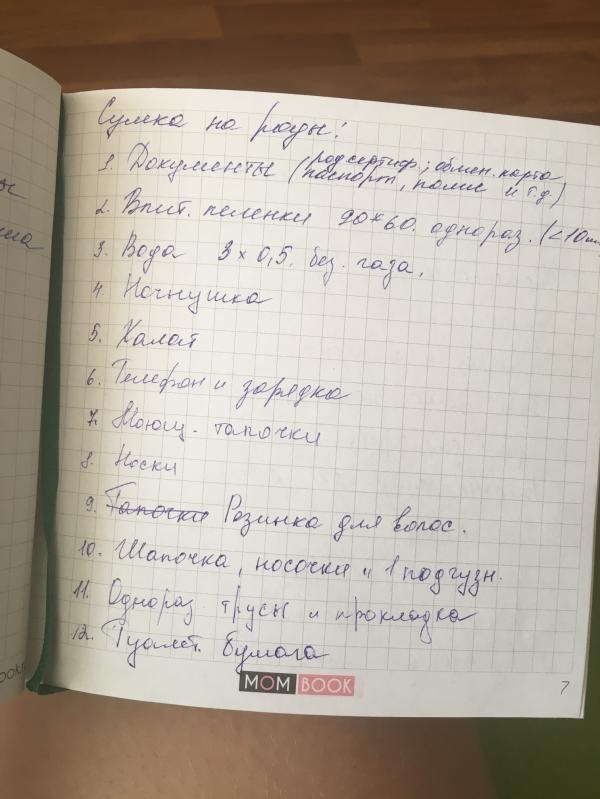 Сумка на роды!
1. Документы (родсертиф; обмен. карта
паспорт, полис и т.д)
2. Впит. пеленки 90×60. однораз. (<10шт
3. Вода 3×0,5. без. газа.
4. Ночнушка
5. Халат
6. Телефон и зарядка
7. Моющ. тапочки
8. Носки
9. Тапочки Резинка для волос.
10. Шапочка, носочки и 1 подгузн.
11. Однораз. трусы и прокладка
12. Туалет. бумага
MOM BOOK
7